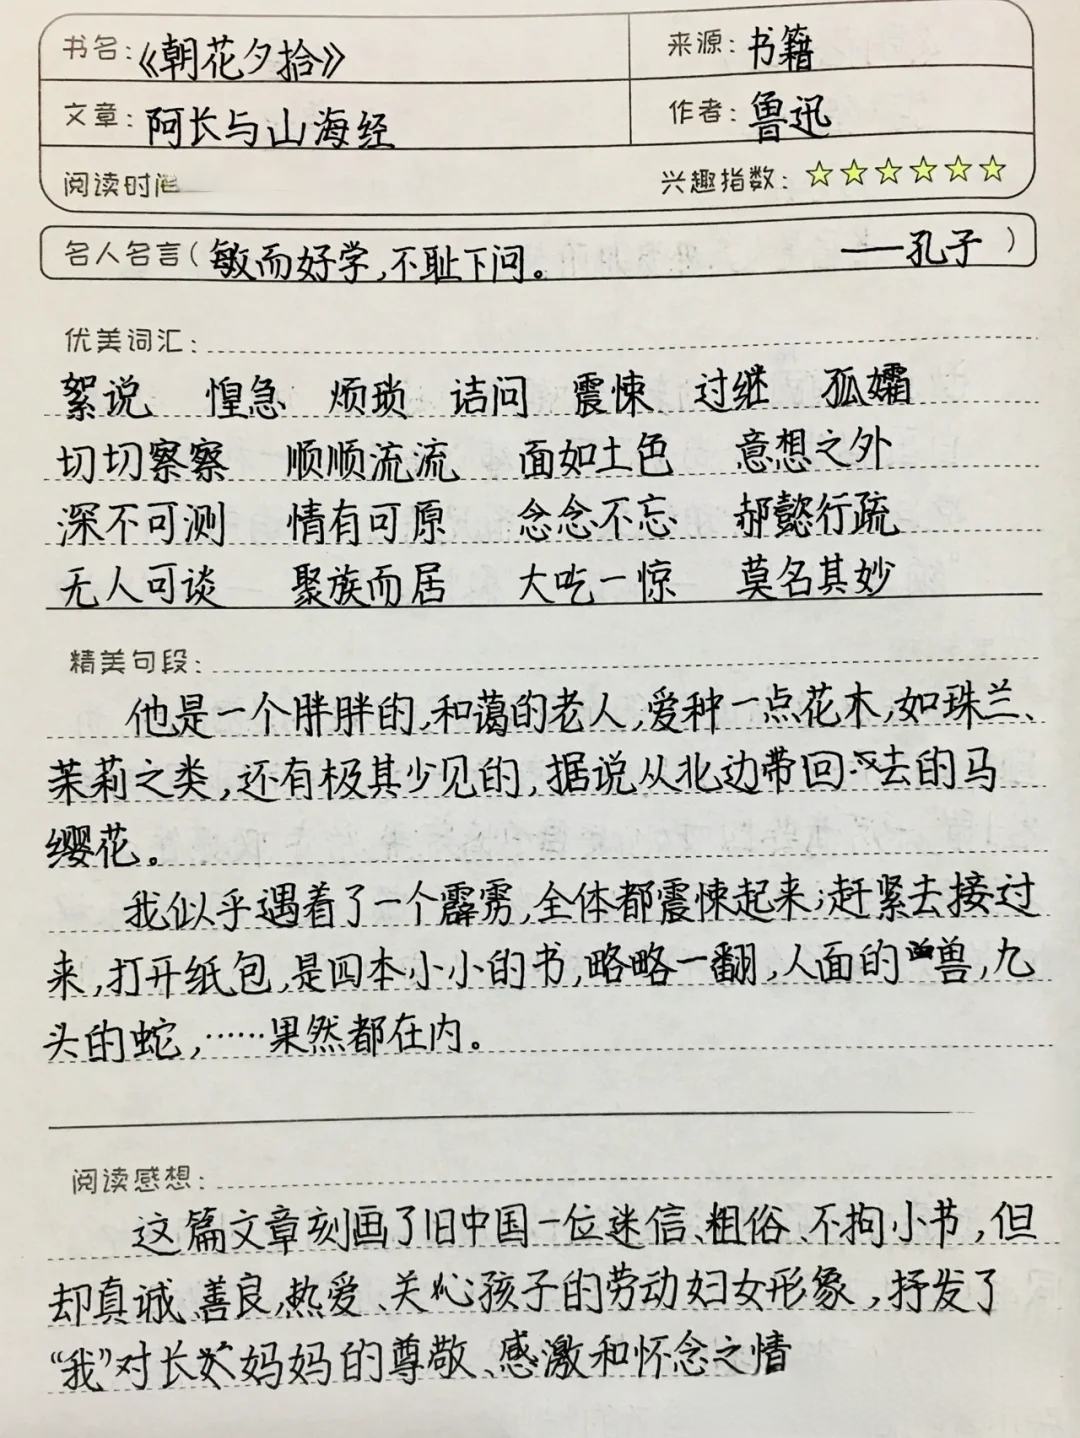 书名:《朝花夕拾》 来源:书籍
文章:阿长与山海经 作者:鲁迅
阅读时间 兴趣指数:☆☆☆☆☆☆
名人名言(敏而好学,不耻下问。 ——孔子)
优美词汇:
絮说 惶急 烦琐 诘问 震悚 过继 孤孀
切切察察 顺顺流流 面如土色 意想之外
深不可测 情有可原 念念不忘 郝懿行疏
无人可谈 聚族而居 大吃一惊 莫名其妙
精美句段:
他是一个胖胖的,和蔼的老人,爱种一点花木,如珠兰、
茉莉之类,还有极其少见的,据说从北边带回去的马
缨花。
我似乎遇着了一个霹雳,全体都震悚起来;赶紧去接过
来,打开纸包,是四本小小的书,略略一翻,人面的兽,九
头的蛇,……果然都在内。
阅读感想:
这篇文章刻画了旧中国一位迷信、粗俗、不拘小节,但
却真诚、善良,热爱、关心孩子的劳动妇女形象,抒发了
“我”对长妈妈的尊敬、感激和怀念之情